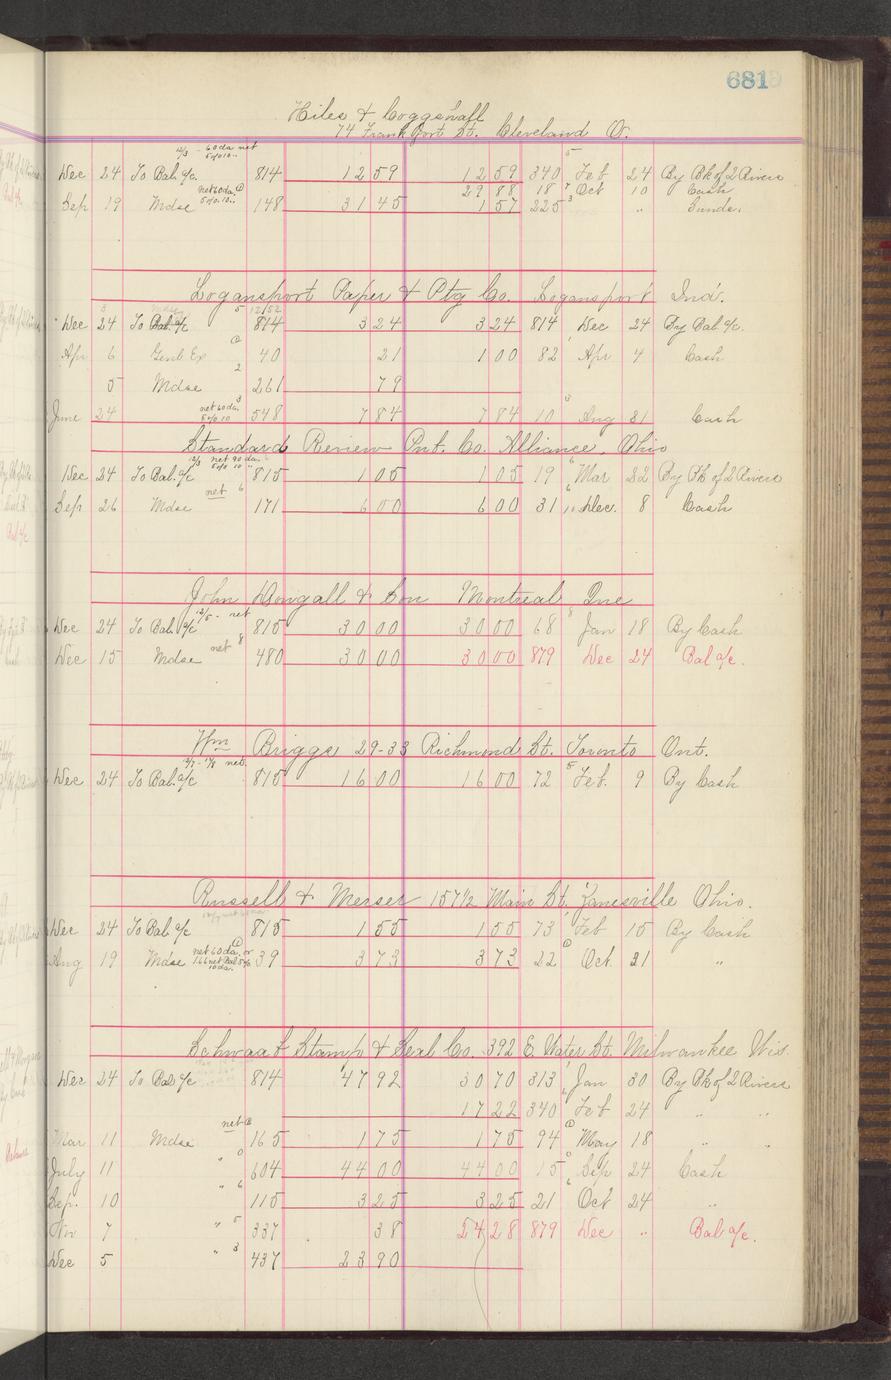 681
Hiles & Coggshall
74 Frankfort St. Cleveland O.
12/3 - 60 da net
5 o/o 10..
Dec 24 To Bal. a/c. 814 12 59 12 59 340 5 Feb 24 By Bk of 2 Rivers
net 60 da. 29 88 18 7 Oct 10 Cash
5 o/o 10..
Sep 19 Mdse 148 31 45 1 57 225 3 " Sunds.
Logansport Paper & Ptg Co. Logansport Ind.
Dec 24 To Bal a/c 814 3 24 3 24 814 Dec 24 By Bal a/c.
Apr 6 Genl Ex 40 21 1 00 82 Apr 4 Cash
2
5 Mdse 261 79
net 60 da. 3
June 24 5 o/o 10 548 7 84 7 84 10 3 Aug 31 Cash
Standard Review Pnt. Co. Alliance, Ohio
12/3 net 90 da.
5 o/o 10 "
Dec 24 To Bal. a/c 815 1 05 1 05 19 6 Mar 22 By Bk of 2 Rivers
net 6
Sep 26 Mdse 171 6 00 6 00 31 6 Dec. 8 Cash
John Dougall & Son Montreal Que
12/5 - net
Dec 24 To Bal a/c 815 30 00 30 00 68 8 Jan 18 By Cash
net 8
Dec 15 Mdse 480 30 00 30 00 879 Dec 24 Bal a/c.
Wm Briggs 29-33 Richmond St. Toronto Ont.
net.
Dec 24 To Bal. a/c 815 16 00 16 00 72 5 Feb. 9 By Cash
Russell & Merser 157 1/2 Main St. Zanesville Ohio.
Dec 24 To Bal a/c 815 1 55 1 55 73 Feb 15 By Cash
net 60 da. or
Aug 19 Mdse 39 3 73 3 73 22 Oct. 21 "
10 da.
Schwaab Stamp & Seal Co. 392 E. Water St. Milwaukee Wis
Dec 24 To Bal a/c 814 47 92 30 70 313 Jan 30 By Bk of 2 Rivers
17 22 340 Feb 24 " "
net
Mar 11 Mdse 165 1 75 1 75 94 May 18 " "
July 11 " 604 44 00 44 00 15 Sep 24 Cash
Sep. 10 " 6 115 3 25 3 25 21 6 Oct 24 "
Nov 7 " 5 337 38 24 28 879 Dec " Bal a/c.
Dec 5 " 3 437 23 90